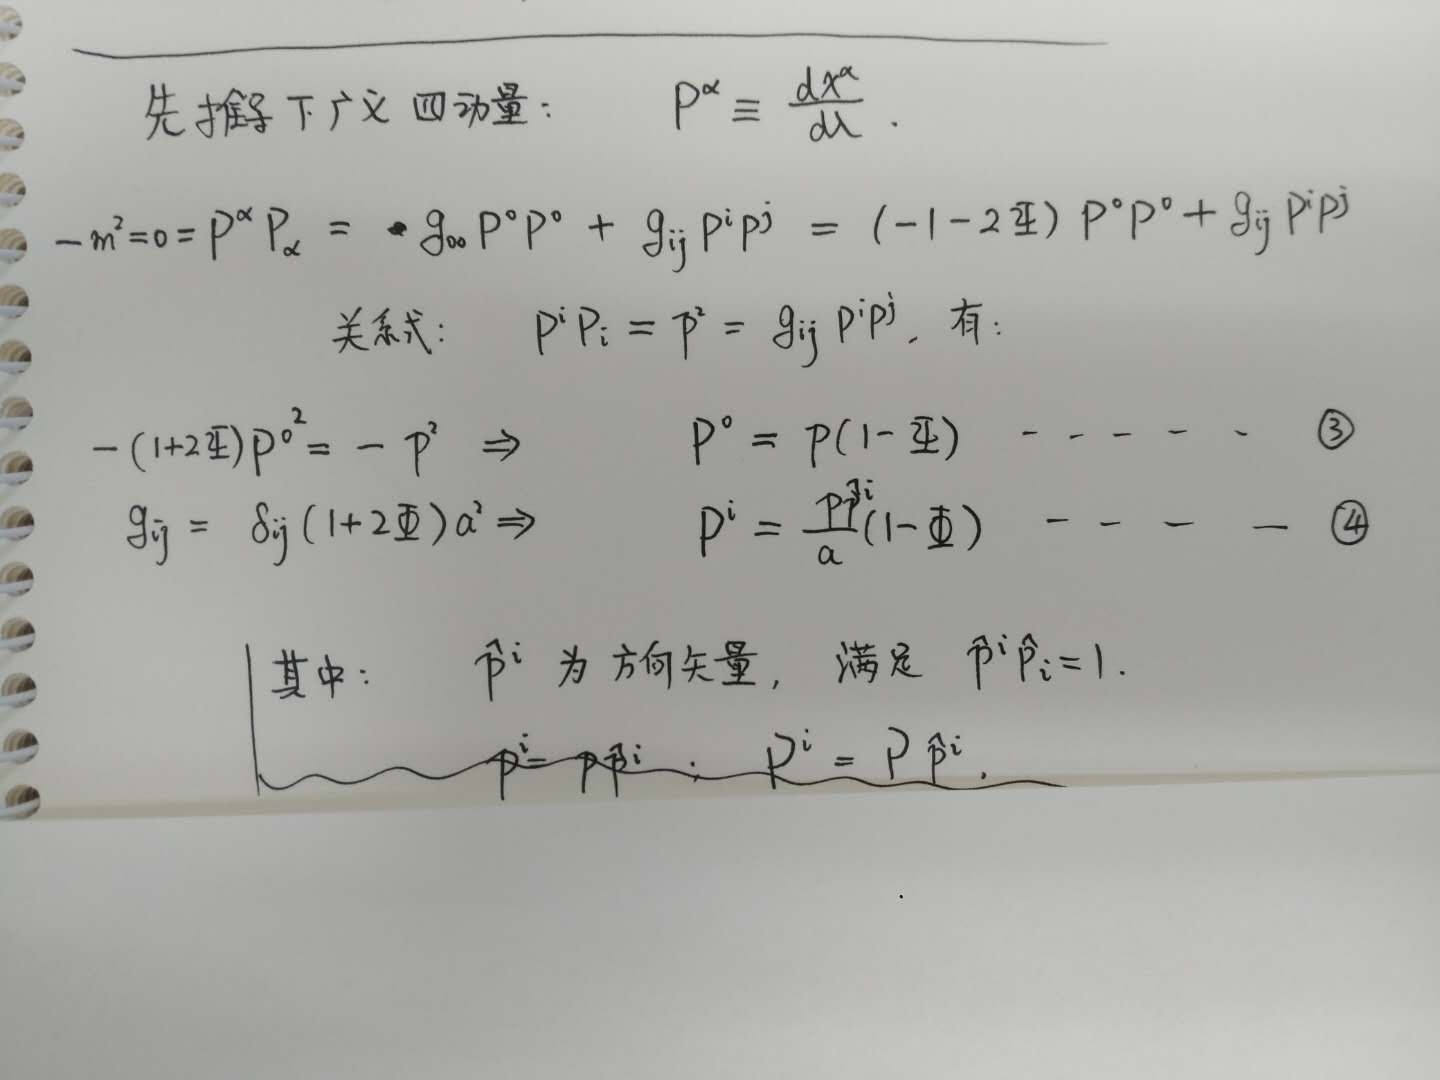 先推导下广义四动量: P^α ≡ dx^α/dλ .
-m²=0=P^α P_α = g₀₀ P⁰P⁰ + g_ij P^i P^j = (-1-2Ψ) P⁰P⁰ + g_ij P^i P^j
关系式: P^i P_i = p² = g_ij P^i P^j, 有:
-(1+2Ψ)P⁰² = - p² ⇒ P⁰ = p(1-Ψ) - - - - - ③
g_ij = δ_ij (1+2Φ)a² ⇒ P^i = pp̂^i/a (1-Φ) - - - - ④
其中: p̂^i 为方向矢量, 满足 p̂^i p̂_i = 1.
p^i = pp̂^i ; P^i = P p̂^i .